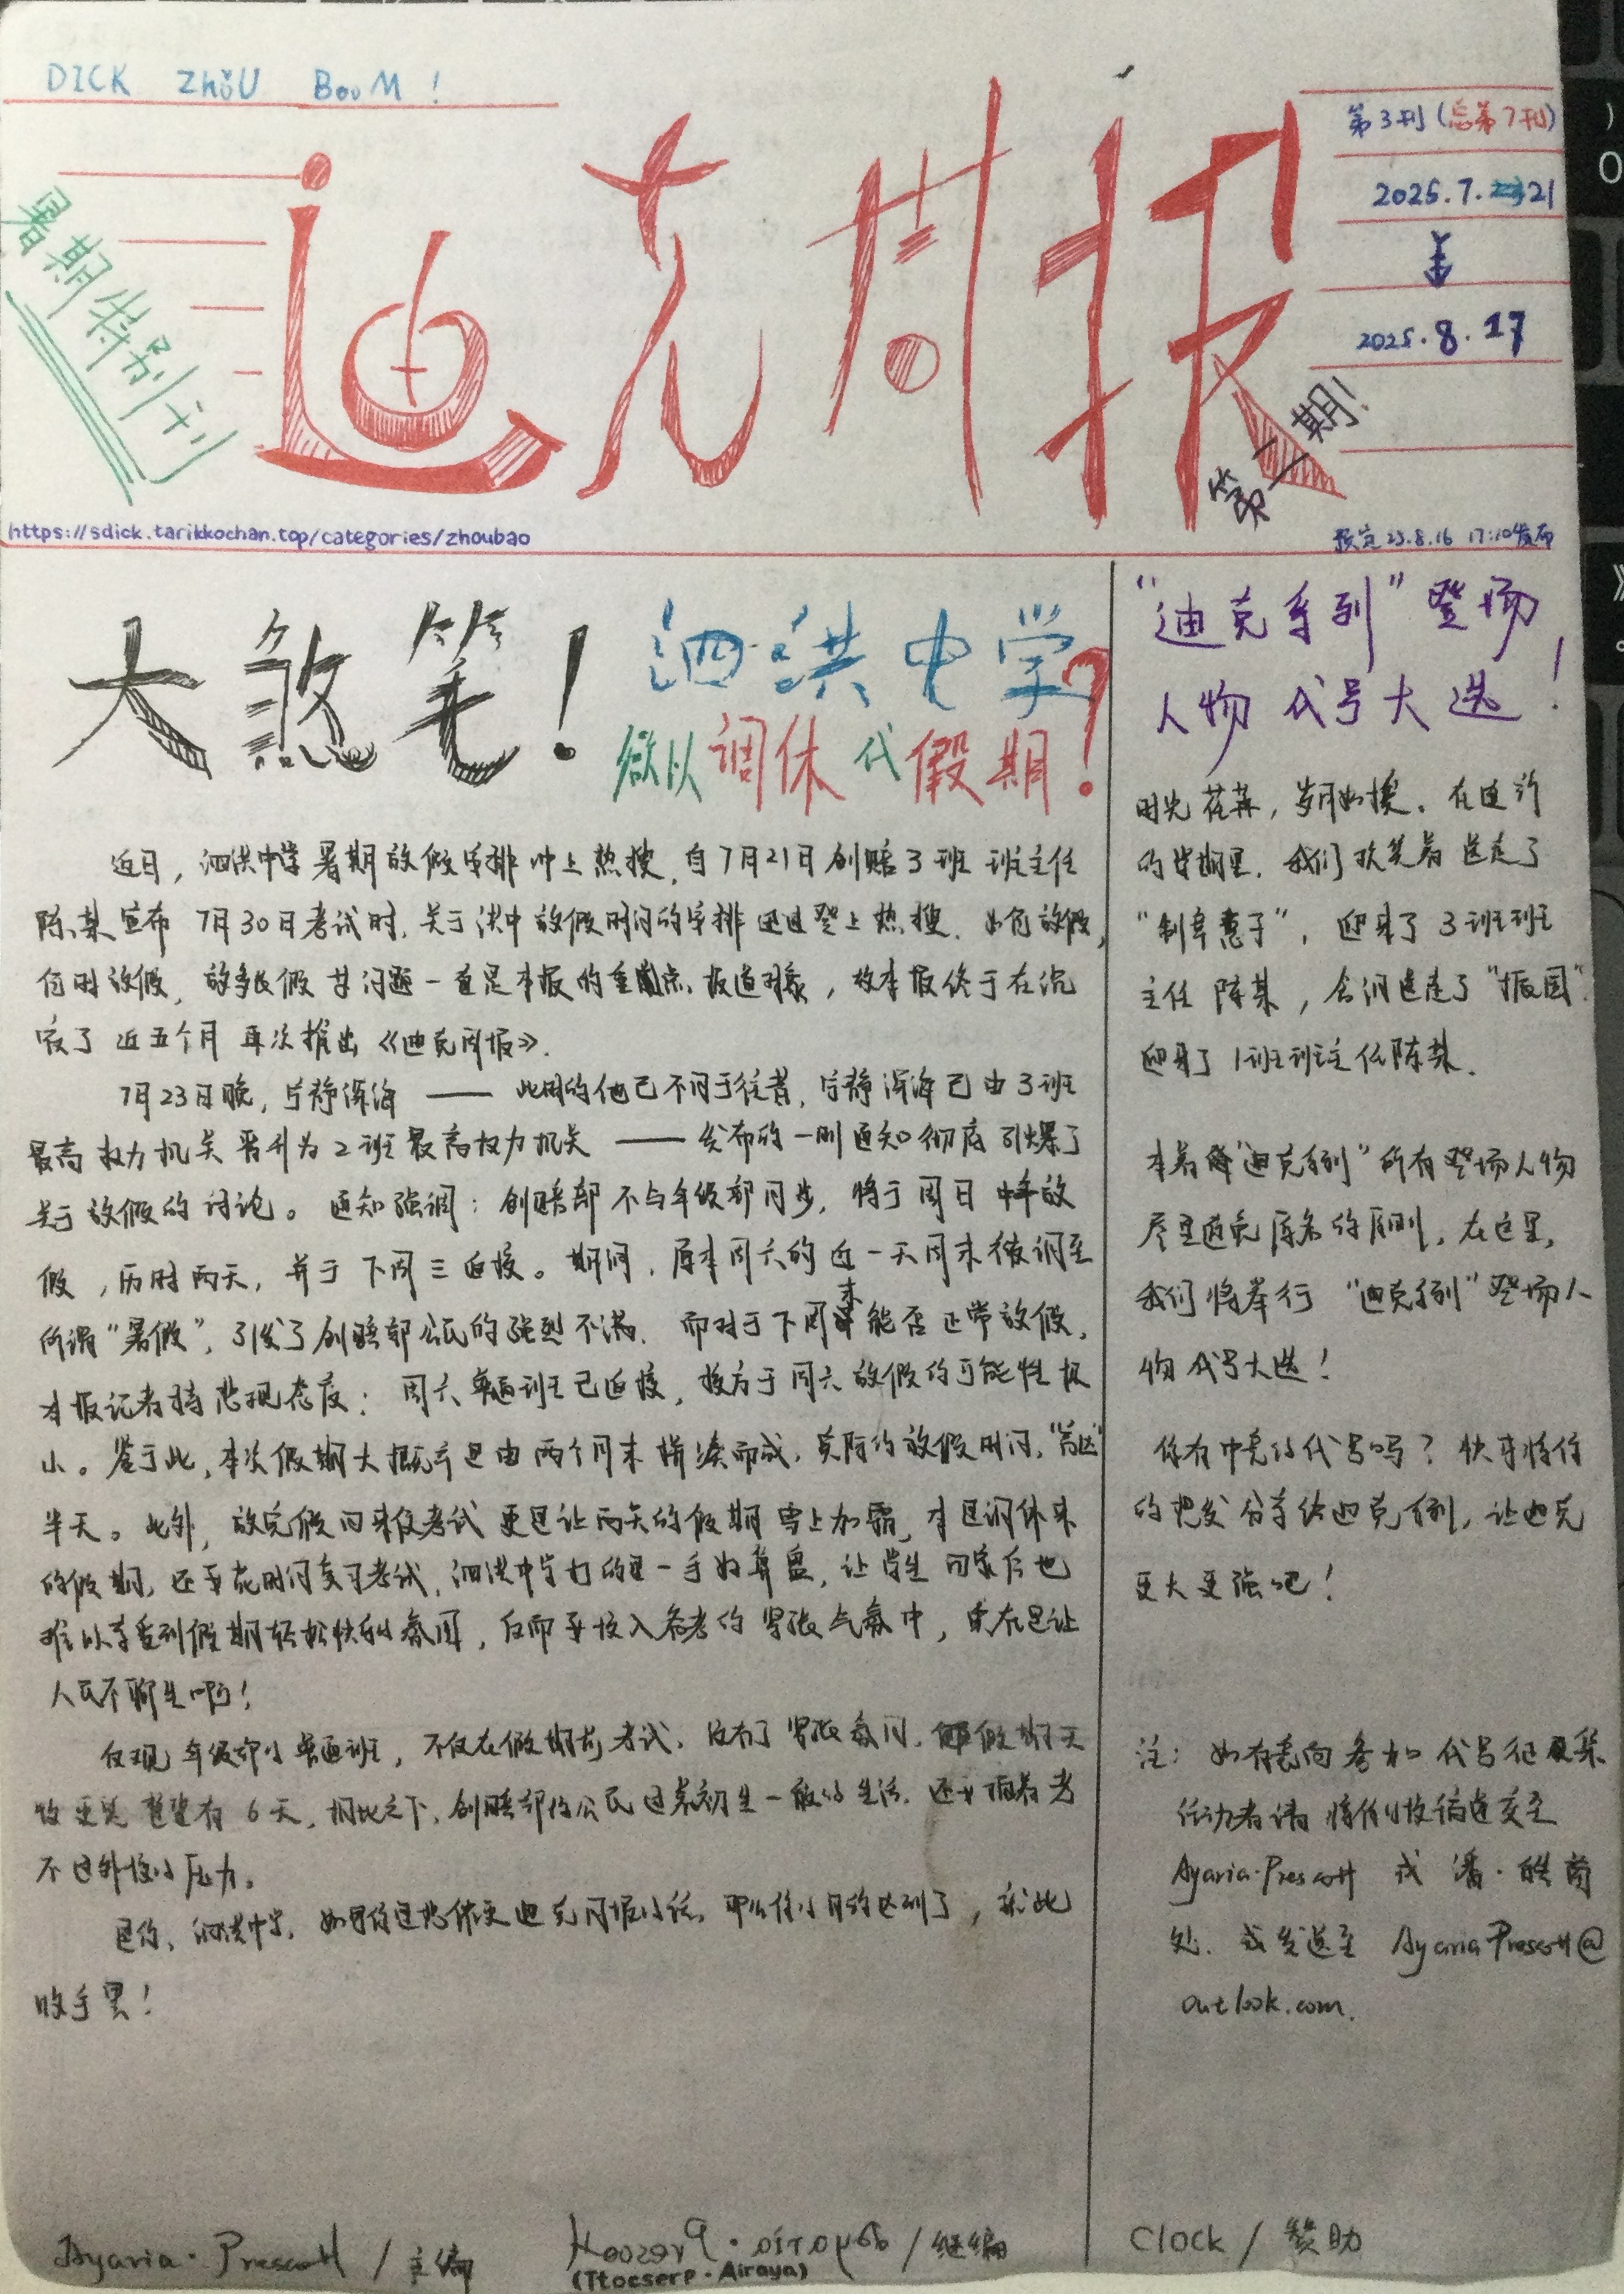 DICK ZhōU BooM!
第3刊(总第7刊)
2025.7.21
2025.8.17
暑期特别刊
迪克周报
第二期!
https://sdick.tarikkochan.top/categories/zhoubao
预定25.8.16 17:10发布
大煞笔!
泗洪中学?
欲以调休代假期!
近日，泗洪中学暑期放假安排冲上热搜，自7月21日创赔3班班主任
陈某宣布7月30日考试时，关于洪中放假时间的安排迅速登上热搜。如何放假，
何时放假，放多长假等问题一直是本报的重点报道对象，故本报终于在沉
寂了近五个月再次推出《迪克周报》。
7月23日晚，宁静深海——此时的他已不同于往昔，宁静深海已由3班
最高权力机关晋升为2班最高权力机关——发布的一则通知彻底引爆了
关于放假的讨论。通知强调：创赔部不与年级部同步，将于周日中午放
假，历时两天，并于下周三返校。期间，原本周六的近一天周末被调至
所谓“暑假”，引发了创赔部公民的强烈不满。而对于下周末能否正常放假，
本报记者持悲观态度：周六普通班已返校，校方于周六放假的可能性极
小。鉴于此，本次假期大概率是由两个周末拼凑而成，实际的放假时间，“高达”
半天。此外，放完假回来后考试更是让两天的假期雪上加霜，本是调休来
的假期，还要花时间复习考试，泗洪中学打的是一手好算盘，让学生回家后也
难以享受到假期轻松快乐的氛围，反而要投入备考的紧张气氛中，实在是让
人民不聊生啊!
反观年级部的普通班，不仅在假期前考试，没有了紧张氛围，假期天
数更是整整有6天，相比之下，创赔部的公民过着初生一般的生活，还要顶着考
不过外校的压力。
是你，泗洪中学，如果你是想做更迪克周报的话，那么你的目的达到了，就此
收手罢!
“迪克系列”登场
人物代号大选!
时光荏苒，岁月如梭。在这新
的学期里，我们欢笑着送走了
“制阜惠子”，迎来了3班班
主任陈某，含泪送走了“振国”
迎来了1班班主任陈某。
本着将“迪克系列”所有登场人物
尽量避免原名的原则，在这里，
我们将举行“迪克系列”登场人
物代号大选!
你有中意的代号吗？快来将你
的想法分享给迪克系列，让迪克
更大更强吧!
注：如有意向参加代号征集
活动者请将你的投稿递交至
Ayaria·Prescott或潘·皓菌
处，或发送至AyariaPrescott@
outlook.com.
Ayaria·Prescott/主编
(Ttocserp·Airaya)
/继编
Clock/赞助